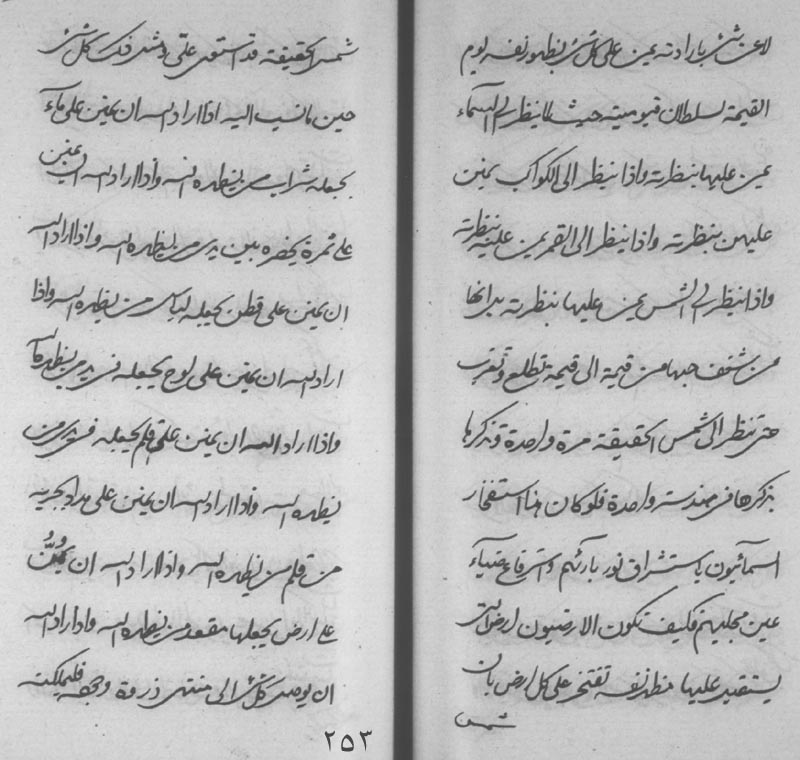 لا عن شئ بارادته يمن على كل شئ بظهور نفسه يوم
القيمة لسلطان قيوميته حيث لا ينظر الى السماء
يمن عليها بنظرته واذا ينظر الى الكواكب يمنن
عليهن بنظرته واذا ينظر الى القمر يمن عليه بنظرته
واذا ينظر الى الشمس يمن عليها بنظرته بدانها
من شغف حبها من قيمة الى قيمة تطلع وتغرب
حتى تنظر الى شمس الحقيقة مرة واحدة وتذكرها
بذكرها فى مدة واحدة فلو كان هذا استفخار
اسمائيون باستشراق نور بارئهم واسترفاع ضياء
عين مجليهم فكيف تكون الارضيون ارض التى
يستقر عليها مظهر نفسه تفتخر على كل ارض بان
شمس
شمس الحقيقة قد استوى على وشرفك كل شئ
حين ما نسب اليه اذا اراد الله ان يمنن على ماء
يجعله شراب من يظهره الله واذا اراد الله ان يمنن
على ثمرة يحضره بين يدى من يظهره الله واذا اراد الله
ان يمنن على قطن يجعله لباس من يظهره الله واذا
اراد الله ان يمنن على لوح يجعله فى يدى من يظهره الله
واذا اراد الله ان يمنن على قلم يجعله فى يدى من
يظهره الله واذا اراد الله ان يمنن على مداد يجريه
من قلم من يظهره الله واذا اراد الله ان يمنن
على ارض يجعلها مقعد من يظهره الله واذا اراد الله
ان يوصل كل شئ الى منتهى ذروة وجهه فليملكنه
٢٥٣